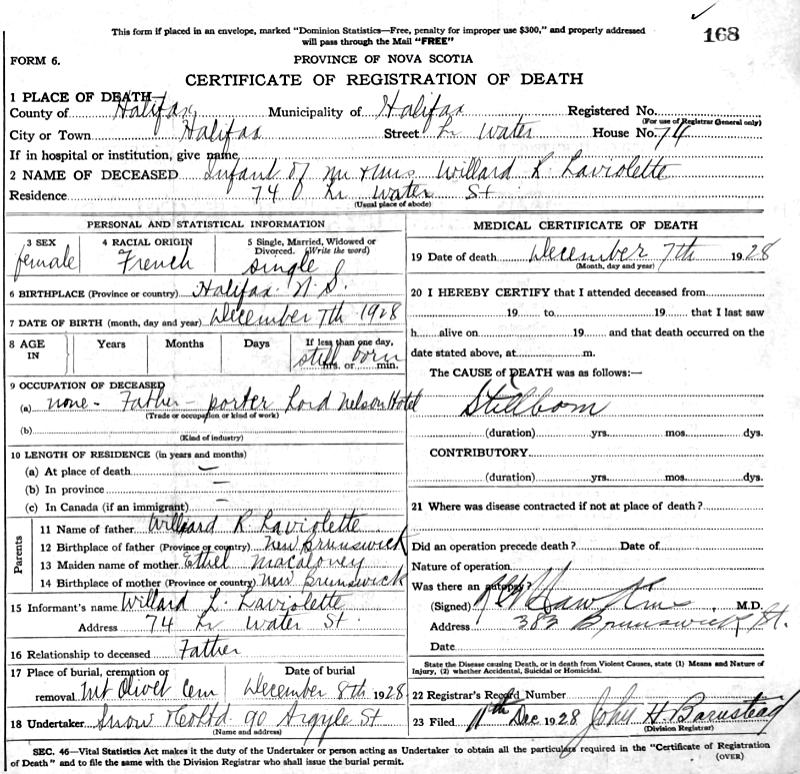 This form if placed in an envelope, marked "Dominion Statistics—Free, penalty for improper use $300," and properly addressed
will pass through the Mail "FREE"
168
FORM 6.
PROVINCE OF NOVA SCOTIA
CERTIFICATE OF REGISTRATION OF DEATH
1 PLACE OF DEATH
County of Halifax Municipality of Halifax Registered No.
(For use of Registrar General only)
City or Town Halifax Street Lr Water House No. 74
If in hospital or institution, give name
2 NAME OF DECEASED Infant of Mr & Mrs Willard L. Laviolette
Residence 74 Lr Water St
(Usual place of abode)
PERSONAL AND STATISTICAL INFORMATION
3 SEX 4 RACIAL ORIGIN 5 Single, Married, Widowed or
Divorced. (Write the word)
female French single
6 BIRTHPLACE (Province or country) Halifax N.S.
7 DATE OF BIRTH (month, day and year) December 7th 1928
8 AGE IN Years Months Days If less than one day,
still born
hrs. or min.
9 OCCUPATION OF DECEASED
(a) none - Father - porter Lord Nelson Hotel
(Trade or occupation or kind of work)
(b)
(Kind of industry)
10 LENGTH OF RESIDENCE (in years and months)
(a) At place of death
(b) In province
(c) In Canada (if an immigrant)
Parents
11 Name of father Willard R Laviolette
12 Birthplace of father (Province or country) New Brunswick
13 Maiden name of mother Ethel Macaloney
14 Birthplace of mother (Province or country) New Brunswick
15 Informant's name Willard L. Laviolette
Address 74 Lr Water St.
16 Relationship to deceased Father
17 Place of burial, cremation or Date of burial
removal Mt Olivet Cem December 8th 1928
18 Undertaker Snow & Co Ltd 90 Argyle St
(Name and address)
MEDICAL CERTIFICATE OF DEATH
19 Date of death December 7th 1928
(Month, day and year)
20 I HEREBY CERTIFY that I attended deceased from
19 to 19 that I last saw
h alive on 19 and that death occurred on the
date stated above, at m.
The CAUSE of DEATH was as follows:—
Stillborn
(duration) yrs. mos. dys.
CONTRIBUTORY
(duration) yrs. mos. dys.
21 Where was disease contracted if not at place of death?
Did an operation precede death? Date of
Nature of operation
Was there an autopsy?
(Signed) M.D.
Address 383 Brunswick St.
Date
State the Disease causing Death, or in death from Violent Causes, state (1) Means and Nature of
Injury, (2) whether Accidental, Suicidal or Homicidal.
22 Registrar's Record Number
23 Filed 11th Dec 1928 John H Barnstead
(Division Registrar)
SEC. 46—Vital Statistics Act makes it the duty of the Undertaker or person acting as Undertaker to obtain all the particulars required in the "Certificate of Registration
of Death" and to file the same with the Division Registrar who shall issue the burial permit.
(OVER)